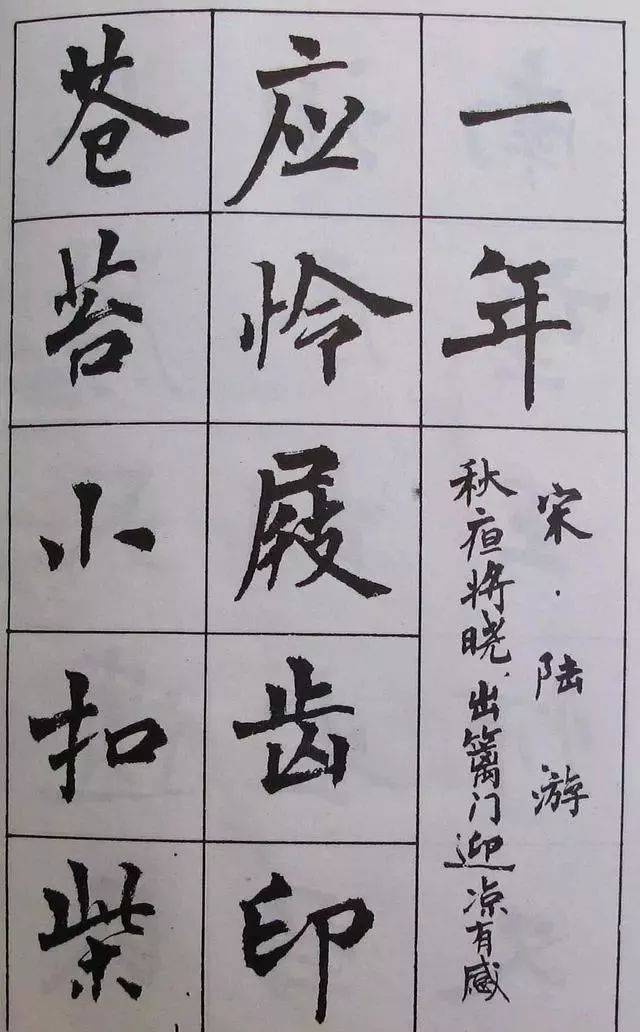 一年
宋·陆游
秋疸将晓，出篱门迎凉有感
应怜屐齿印
苍苔小扣柴